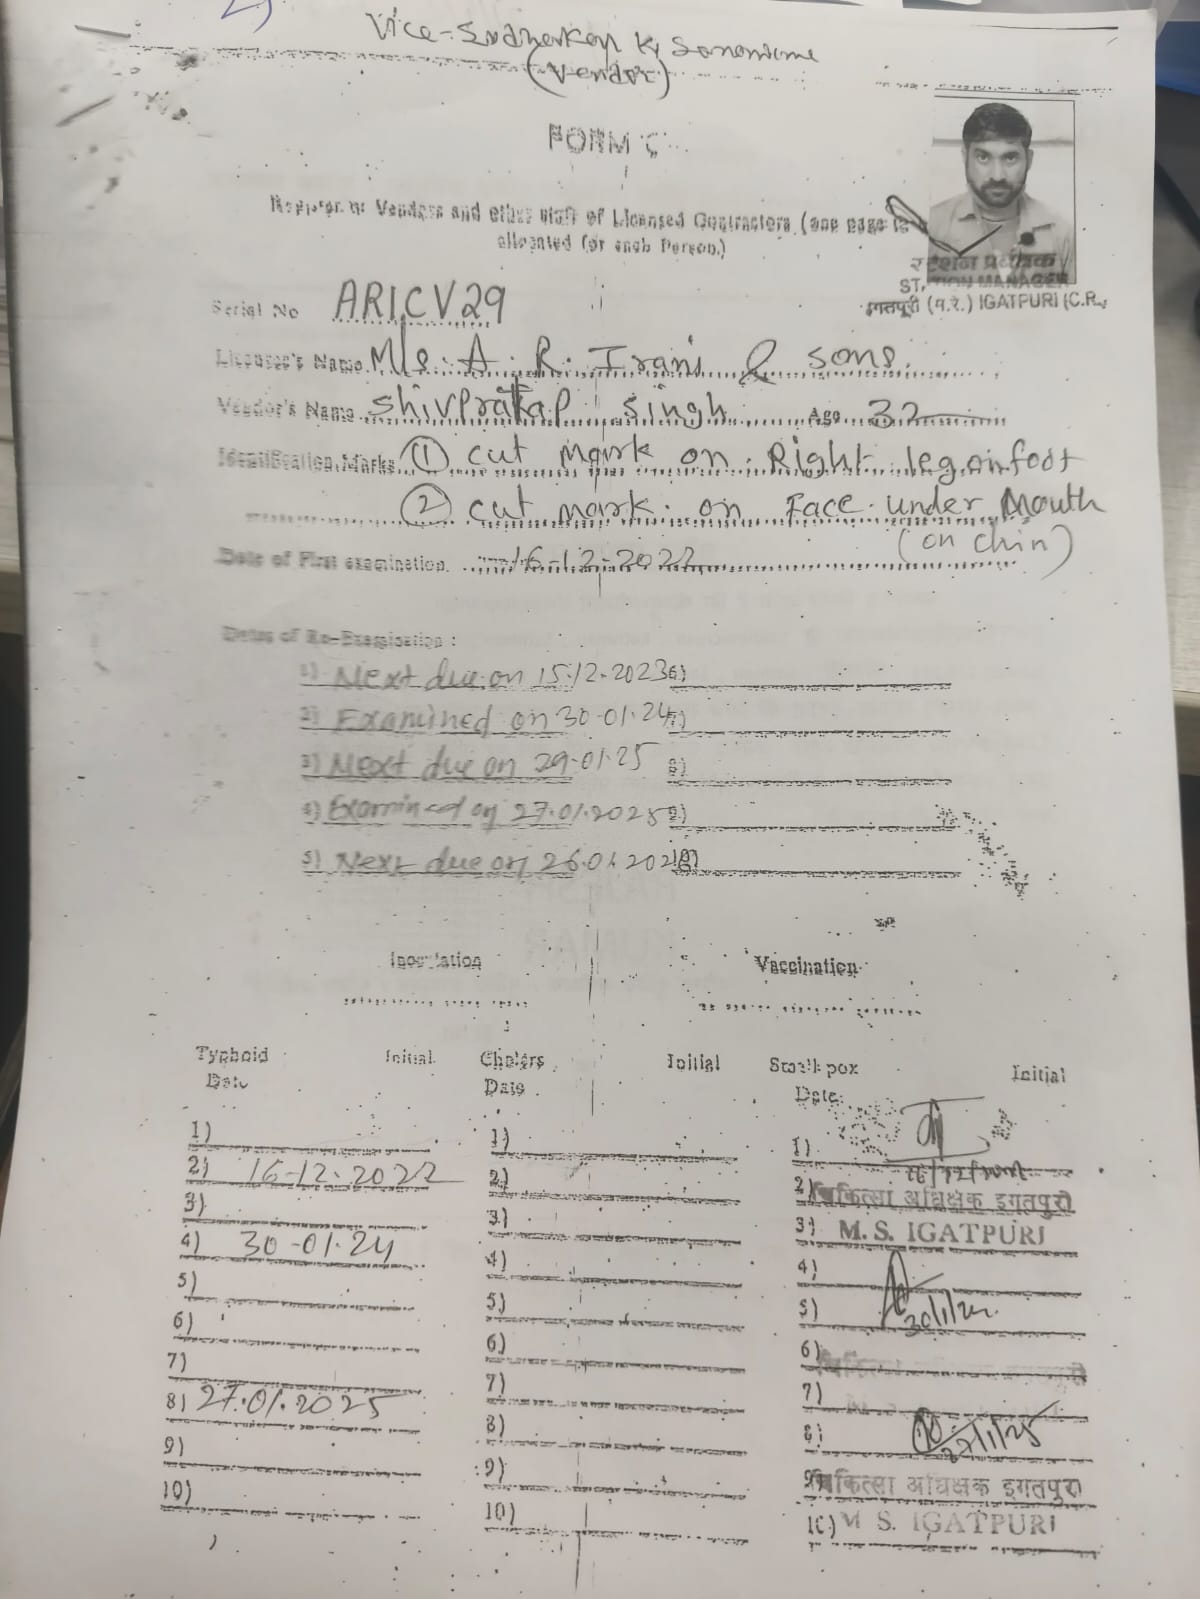 Vice-
(Vendor)
FORM C
Register of Vendors and other staff of Licensed Contractors (one page to
allocated for each Person.)
स्टेशन प्रबंधक
STATION MANAGER
इगतपुरी (म.रे.) IGATPURI (C.R.)
Serial No ARICV29
Licensee's Name M/s. A. R. Irani & sons.
Vendor's Name shivpratap singh Age 32
Identification Marks (1) cut mark on Right leg on foot
(2) cut mark on Face under Mouth
(on chin)
Date of First examination 16-12-2022
Dates of Re-Examination :
1) Next due on 15.12.2023 6)
2) Examined on 30-01-24 7)
3) Next due on 29.01.25 8)
4) Examined on 27.01.2025 9)
5) Next due on 26.01.2026 10)
Inoculation Vaccination
Typhoid Initial Cholera Initial Small pox Initial
Date Date Date
1) 1) 1)
16/12/2022
2) 16-12-2022 2) 2) चिकित्सा अधिक्षक इगतपुरी
3) 3) 3) M. S. IGATPURI
4) 30-01-24 4) 4)
5) 5) 5) 30/1/24
6) 6) 6)
7) 7) 7)
8) 27.01.2025 8) 8) 27/1/25
9) 9) 9) चिकित्सा अधिक्षक इगतपुरी
10) 10) 10) M S. IGATPURI